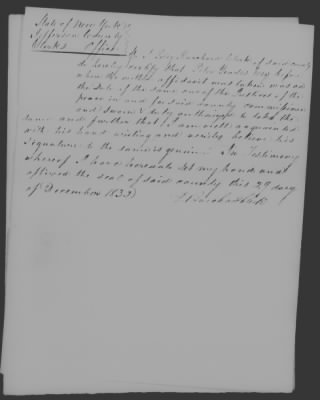 State of New York
Jefferson County
Clerks Office
I Peley Burchard Clerk of said county
do hereby certify that Peter Yendes before
whom the within affidavit was taken was at
the date of the same one of the Justices of the
peace in and for said county commissioned
and sworn & duly authorized to take the
same and further that I am well acquainted
with his hand writing and verily believe his
signature to the same is genuine. In Testimony
whereof I have hereunto set my hand and
affixed the seal of said county this 29 day
of December 1833